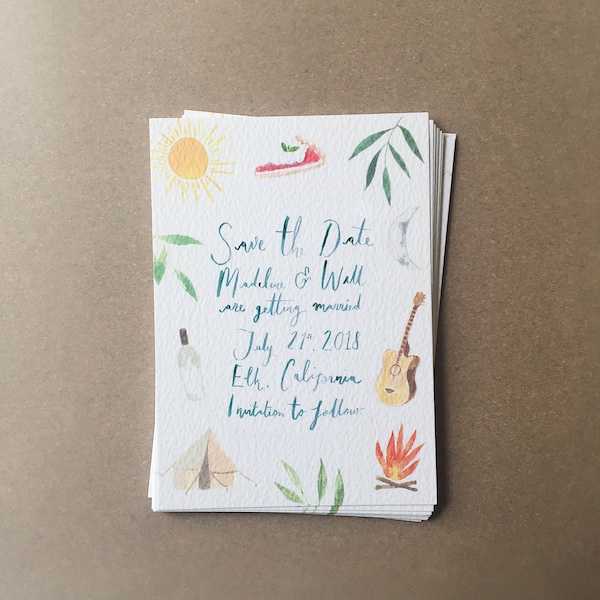 Save the Date
Madeline & Wall
are getting married
July 21st, 2018
Elk, California
Invitation to follow